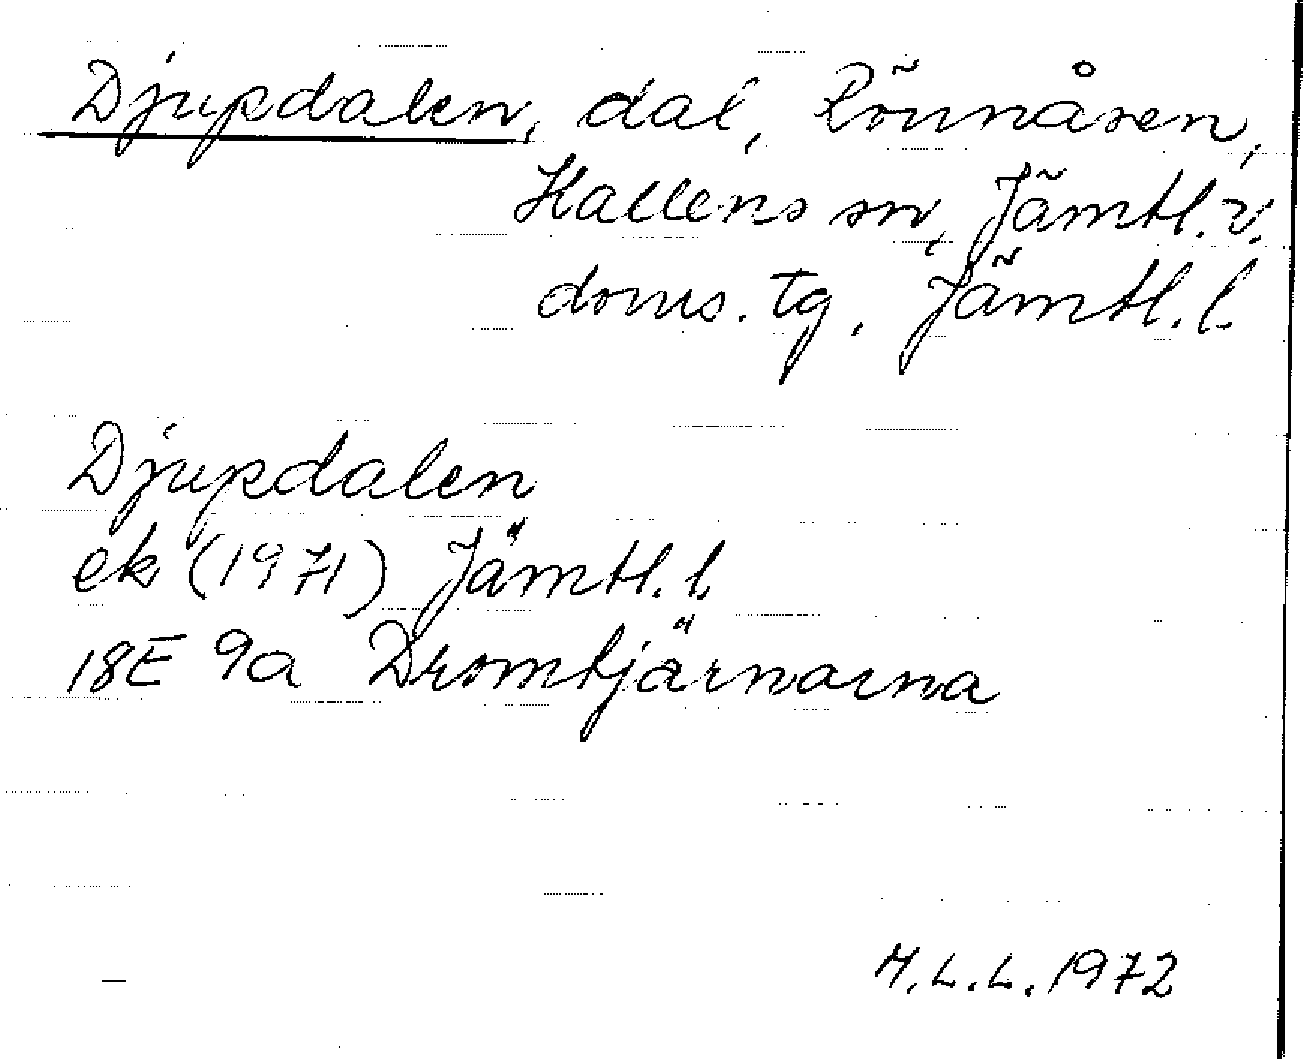 Djupdalen, dal, Rönnåsen,
Hallens sn, Jämtl. v.
doms. tg, Jämtl. l.
Djupdalen
ek (1971) Jämtl. l.
18E 9a Dromtjärnarna
M.L.L. 1972